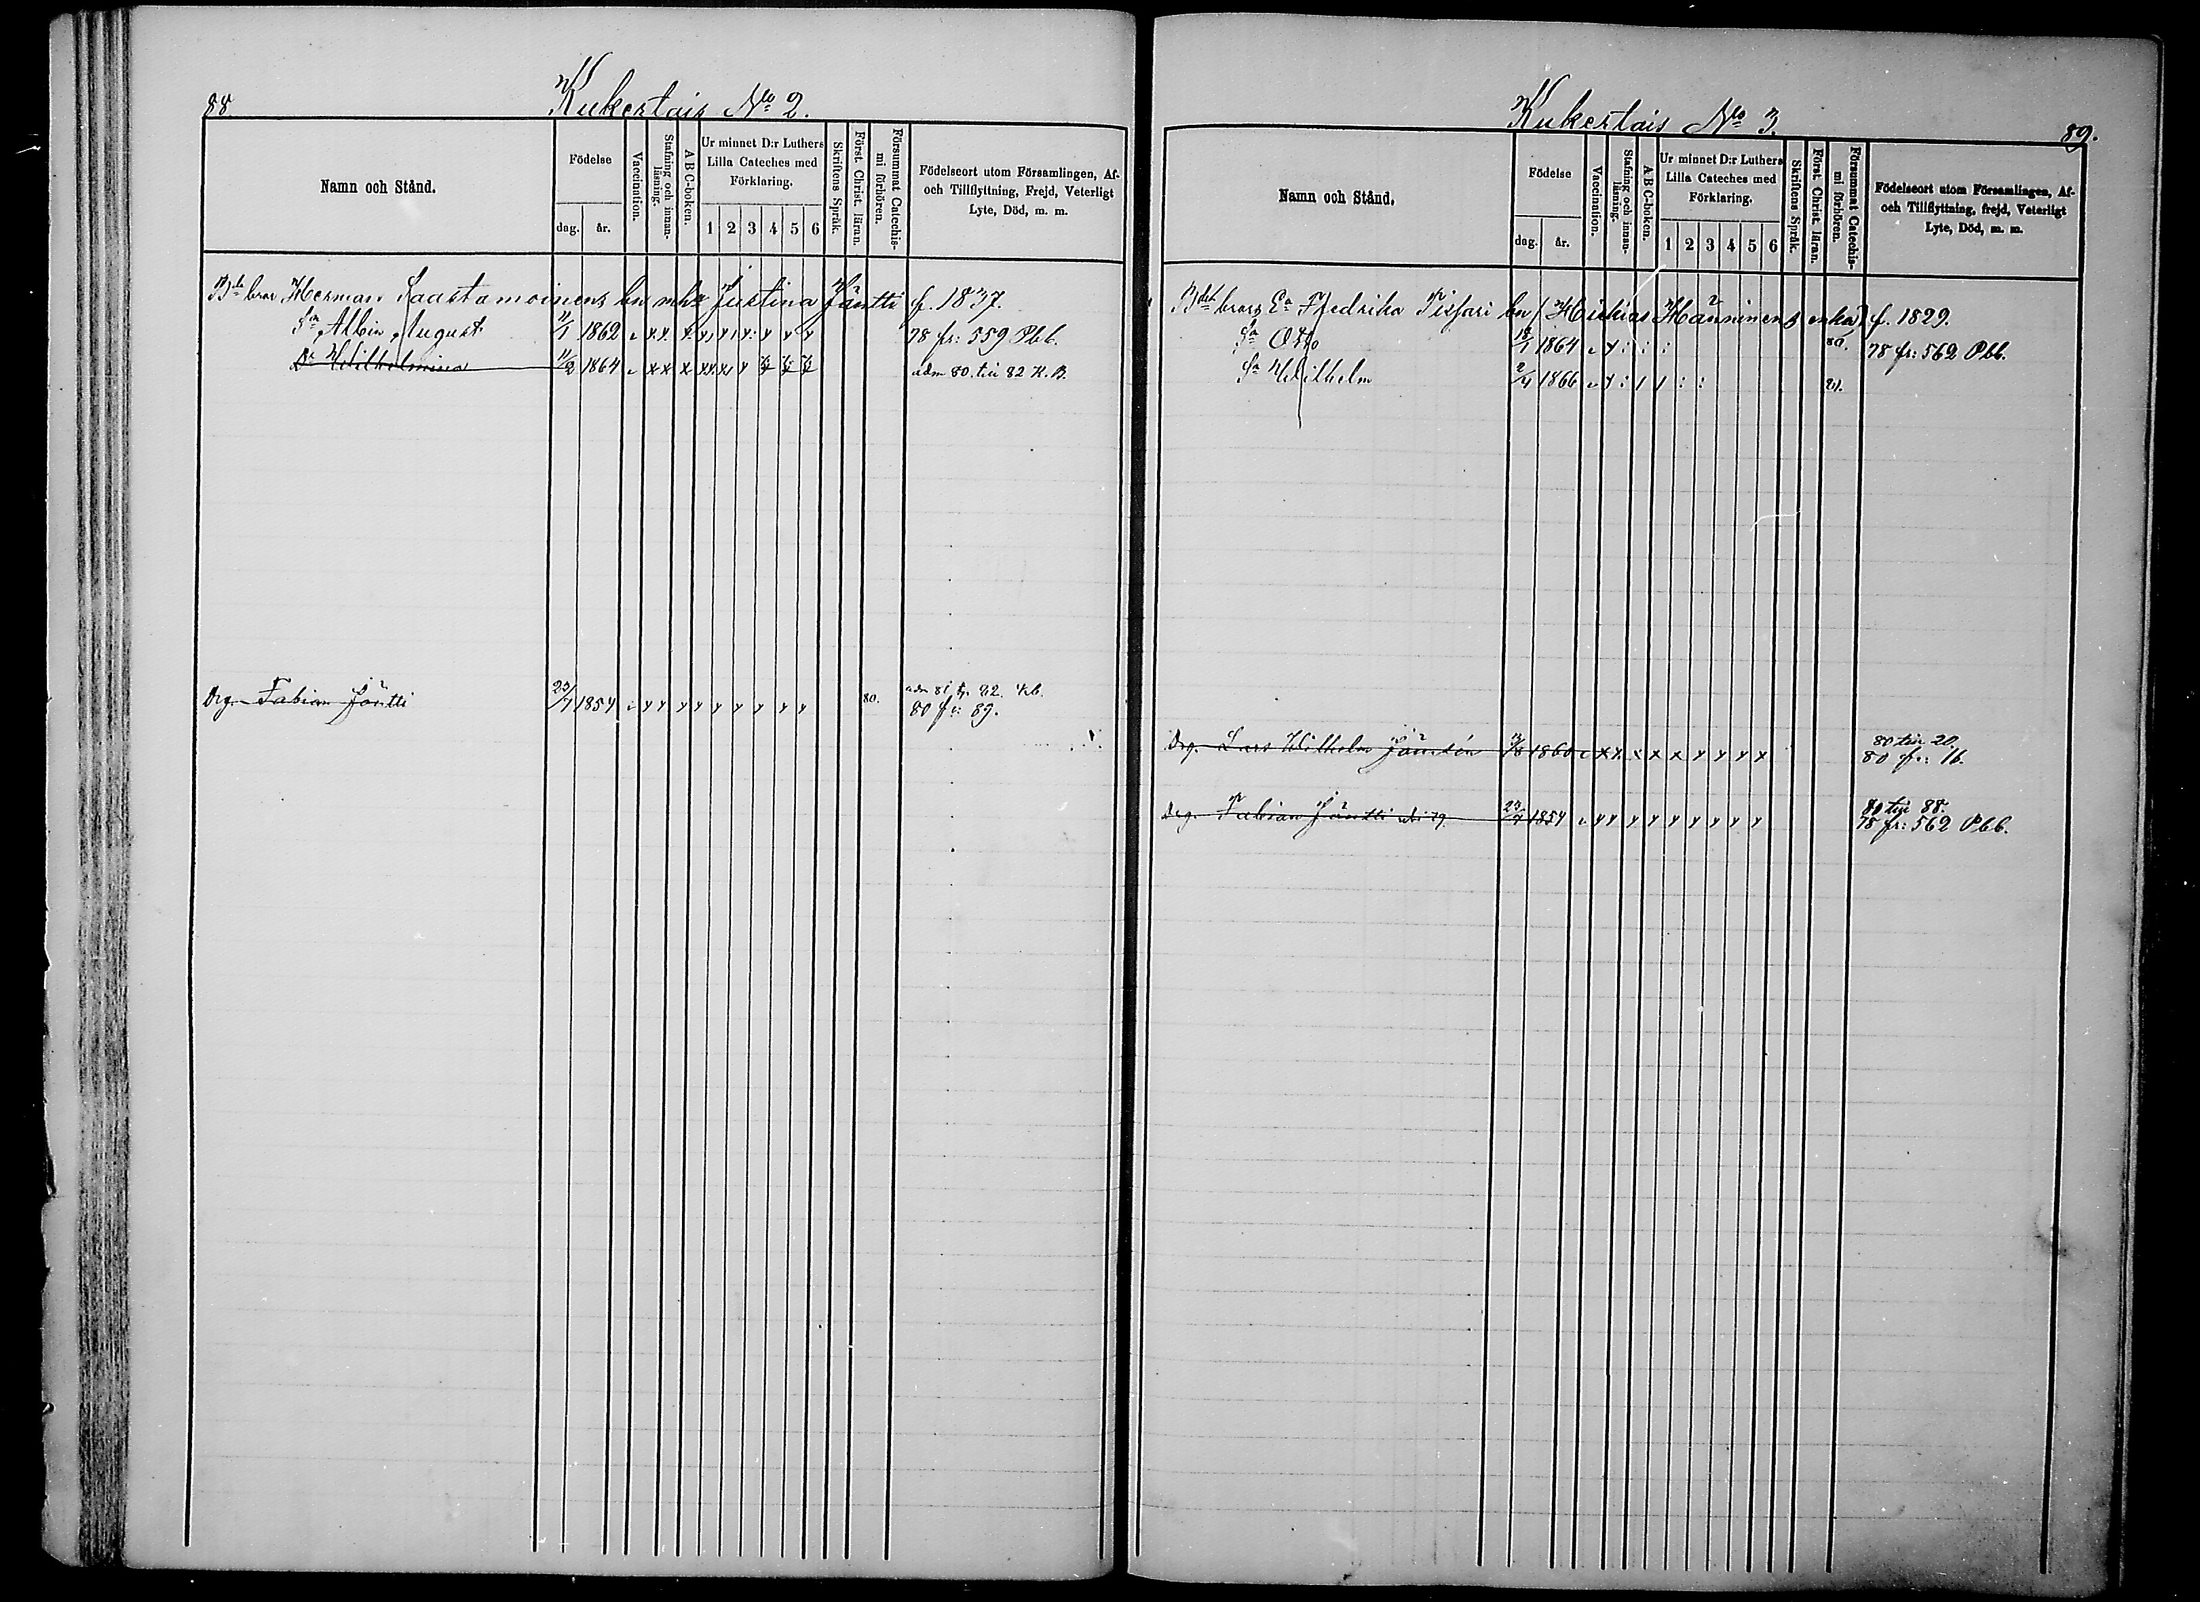 88.
Kukertais No 2.
Namn och Stånd.
Födelse
dag.
år.
Vaccination.
Stafning och innan-
läsning.
A B C-boken.
Ur minnet D:r Luthers
Lilla Cateches med
Förklaring.
1 2 3 4 5 6
Skriftens Språk.
Först. Christ. läran.
Försummat Catechis-
mi förhören.
Födelseort utom Församlingen, Af-
och Tillflyttning, Frejd, Veterligt
Lyte, Död, m. m.
Herman Saastamoinens Justina Jäntti f. 1837.
Sn Albin August 1862 78 fr: 559 Pbb.
Dr Wilhelmina 11/2 1864 adm 80. tin 82 K. B.
Drg. Fabian Jäntti 23/7 1854 80. 80 fr: 89.
Kukertais No 3.
89.
Namn och Stånd.
Födelse
dag.
år.
Vaccination.
Stafning och innan-
läsning.
A B C-boken.
Ur minnet D:r Luthers
Lilla Cateches med
Förklaring.
1 2 3 4 5 6
Skriftens Språk.
Först. Christ. läran.
Försummat Catechis-
mi förhören.
Födelseort utom Församlingen, Af-
och Tillflyttning, frejd, Veterligt
Lyte, Död, m. m.
Ea Fredrika Männinens enka) f. 1829.
Sn Otto 1864 80. 78 fr: 562 Pbb.
Sn Wilhelm 2/4 1866
Drg. Lars Wilhelm 1860 80 tin 20.
80 fr: 16.
Drg. Fabian Jäntti 1854 80 tin 88.
78 fr: 562 Pbb.